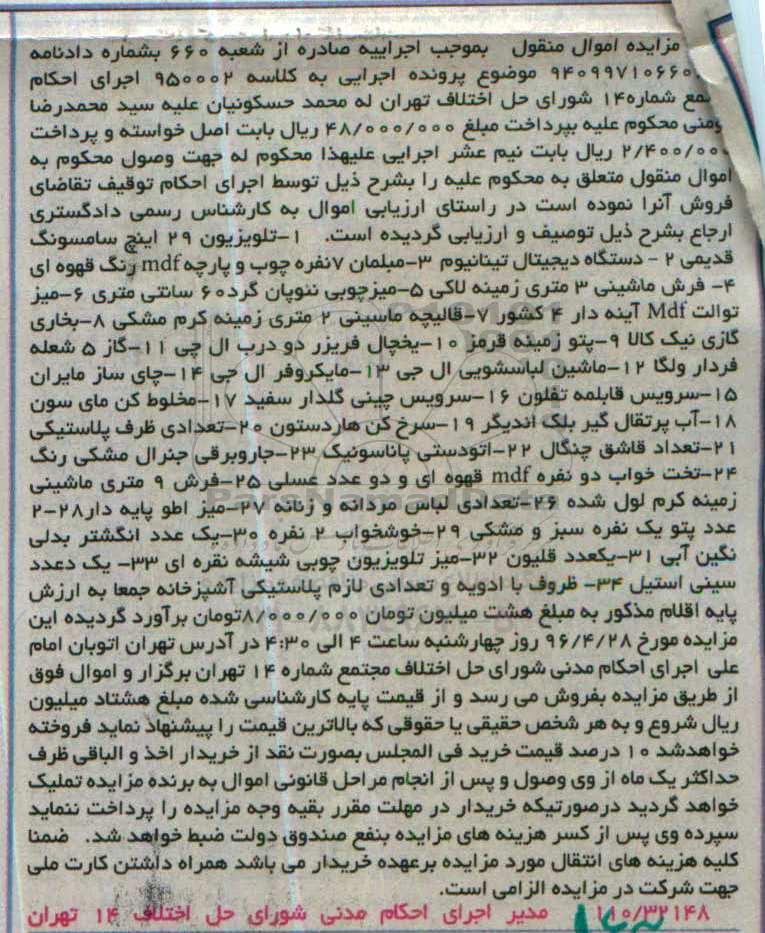 مزایده اموال منقول بموجب اجراییه صادره از شعبه ۶۶۰ بشماره دادنامه
۹۴۰۹۹۷۱۰۶۶۰ موضوع پرونده اجرایی به کلاسه ۹۵۰۰۰۲ اجرای احکام
شماره۱۴ شورای حل اختلاف تهران له محمد حسکونیان علیه سید محمدرضا
محکوم علیه بپرداخت مبلغ ۴۸/۰۰۰/۰۰۰ ریال بابت اصل خواسته و پرداخت
۲/۴۰۰/۰۰۰ ریال بابت نیم عشر اجرایی علیهذا محکوم له جهت وصول محکوم به
اموال منقول متعلق به محکوم علیه را بشرح ذیل توسط اجرای احکام توقیف تقاضای
فروش آنرا نموده است در راستای ارزیابی اموال به کارشناس رسمی دادگستری
ارجاع بشرح ذیل توصیف و ارزیابی گردیده است. ۱-تلویزیون ۲۹ اینچ سامسونگ
قدیمی ۲ - دستگاه دیجیتال تیتانیوم ۳-مبلمان ۷نفره چوب و پارچه mdf رنگ قهوه ای
۴- فرش ماشینی ۳ متری زمینه لاکی ۵-میزچوبی نئوپان گرد۶۰ سانتی متری ۶-میز
توالت Mdf آینه دار ۴ کشور ۷-قالیچه ماسینی ۲ متری زمینه کرم مشکی ۸-بخاری
گازی نیک کالا ۹-پتو زمینه قرمز ۱۰-یخچال فریزر دو درب ال جی ۱۱-گاز ۵ شعله
فردار ولگا ۱۲-ماشین لباسشویی ال جی ۱۳-مایکروفر ال جی ۱۴-چای ساز مایران
۱۵-سرویس قابلمه تفلون ۱۶-سرویس چینی گلدار سفید ۱۷-مخلوط کن مای سون
۱۸-آب پرتقال گیر بلک اندیگر ۱۹-سرخ کن هاردستون ۲۰-تعدادی ظرف پلاستیکی
۲۱-تعداد قاشق چنگال ۲۲-اتودستی پاناسونیک ۲۳-جاروبرقی جنرال مشکی رنگ
۲۴-تخت خواب دو نفره mdf قهوه ای و دو عدد عسلی ۲۵-فرش ۹ متری ماشینی
زمینه کرم لول شده ۲۶-تعدادی لباس مردانه و زنانه ۲۷-میز اطو پایه دار۲۸-۲
عدد پتو یک نفره سبز و مشکی ۲۹-خوشخواب ۲ نفره ۳۰-یک عدد انگشتر بدلی
نگین آبی ۳۱-یکعدد قلیون ۳۲-میز تلویزیون چوبی شیشه نقره ای ۳۳- یک دعدد
سینی استیل ۳۴- ظروف با ادویه و تعدادی لازم پلاستیکی آشپزخانه جمعا به ارزش
پایه اقلام مذکور به مبلغ هشت میلیون تومان ۸/۰۰۰/۰۰۰تومان برآورد گردیده این
مزایده مورخ ۹۶/۴/۲۸ روز چهارشنبه ساعت ۴ الی ۴:۳۰ در آدرس تهران اتوبان امام
علی اجرای احکام مدنی شورای حل اختلاف مجتمع شماره ۱۴ تهران برگزار و اموال فوق
از طریق مزایده بفروش می رسد و از قیمت پایه کارشناسی شده مبلغ هشتاد میلیون
ریال شروع و به هر شخص حقیقی یا حقوقی که بالاترین قیمت را پیشنهاد نماید فروخته
خواهدشد ۱۰ درصد قیمت خرید فی المجلس بصورت نقد از خریدار اخذ و الباقی ظرف
حداکثر یک ماه از وی وصول و پس از انجام مراحل قانونی اموال به برنده مزایده تملیک
خواهد گردید درصورتیکه خریدار در مهلت مقرر بقیه وجه مزایده را پرداخت ننماید
سپرده وی پس از کسر هزینه های مزایده بنفع صندوق دولت ضبط خواهد شد. ضمنا
کلیه هزینه های انتقال مورد مزایده برعهده خریدار می باشد همراه داشتن کارت ملی
جهت شرکت در مزایده الزامی است.
۱۱۰/۳۲۱۴۸ مدیر اجرای احکام مدنی شورای حل اختلاف ۱۴ تهران
ParsNamadData